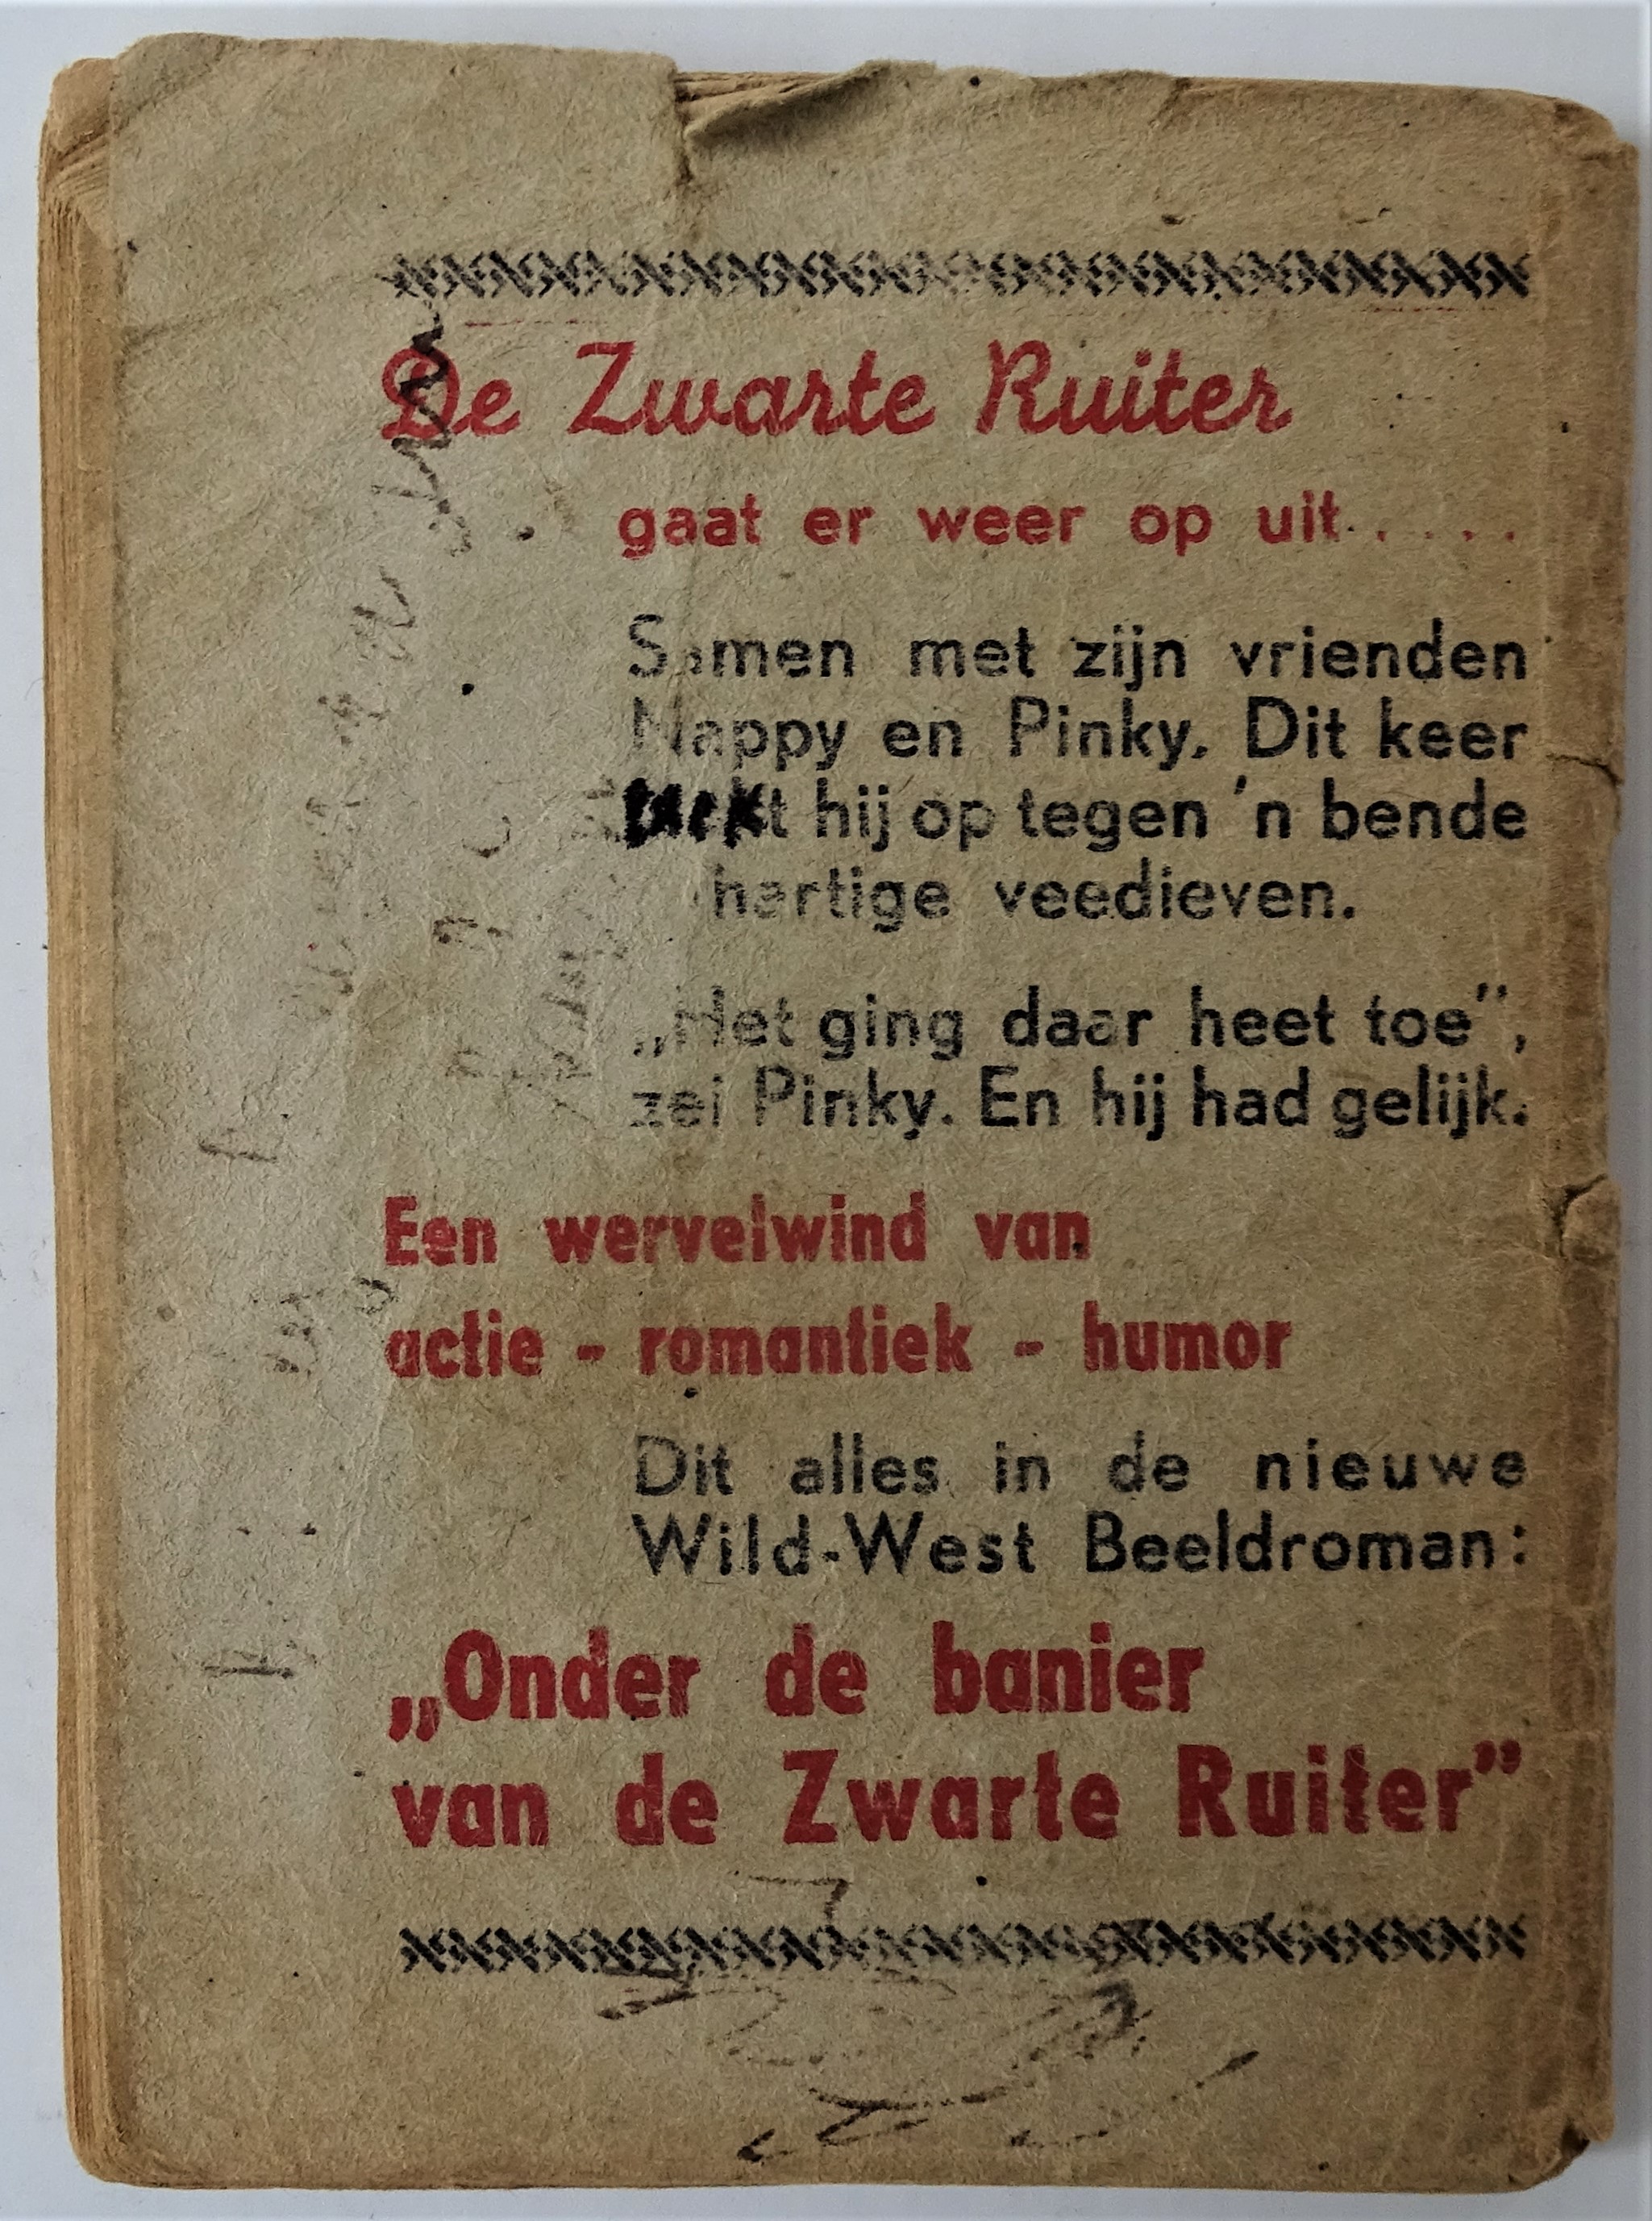 De Zwarte Ruiter
gaat er weer op uit.....
Samen met zijn vrienden
Nappy en Pinky. Dit keer
hij op tegen 'n bende
hartige veedieven.
„Het ging daar heet toe”,
zei Pinky. En hij had gelijk.
Een wervelwind van
actie - romantiek - humor
Dit alles in de nieuwe
Wild-West Beeldroman:
„Onder de banier
van de Zwarte Ruiter”